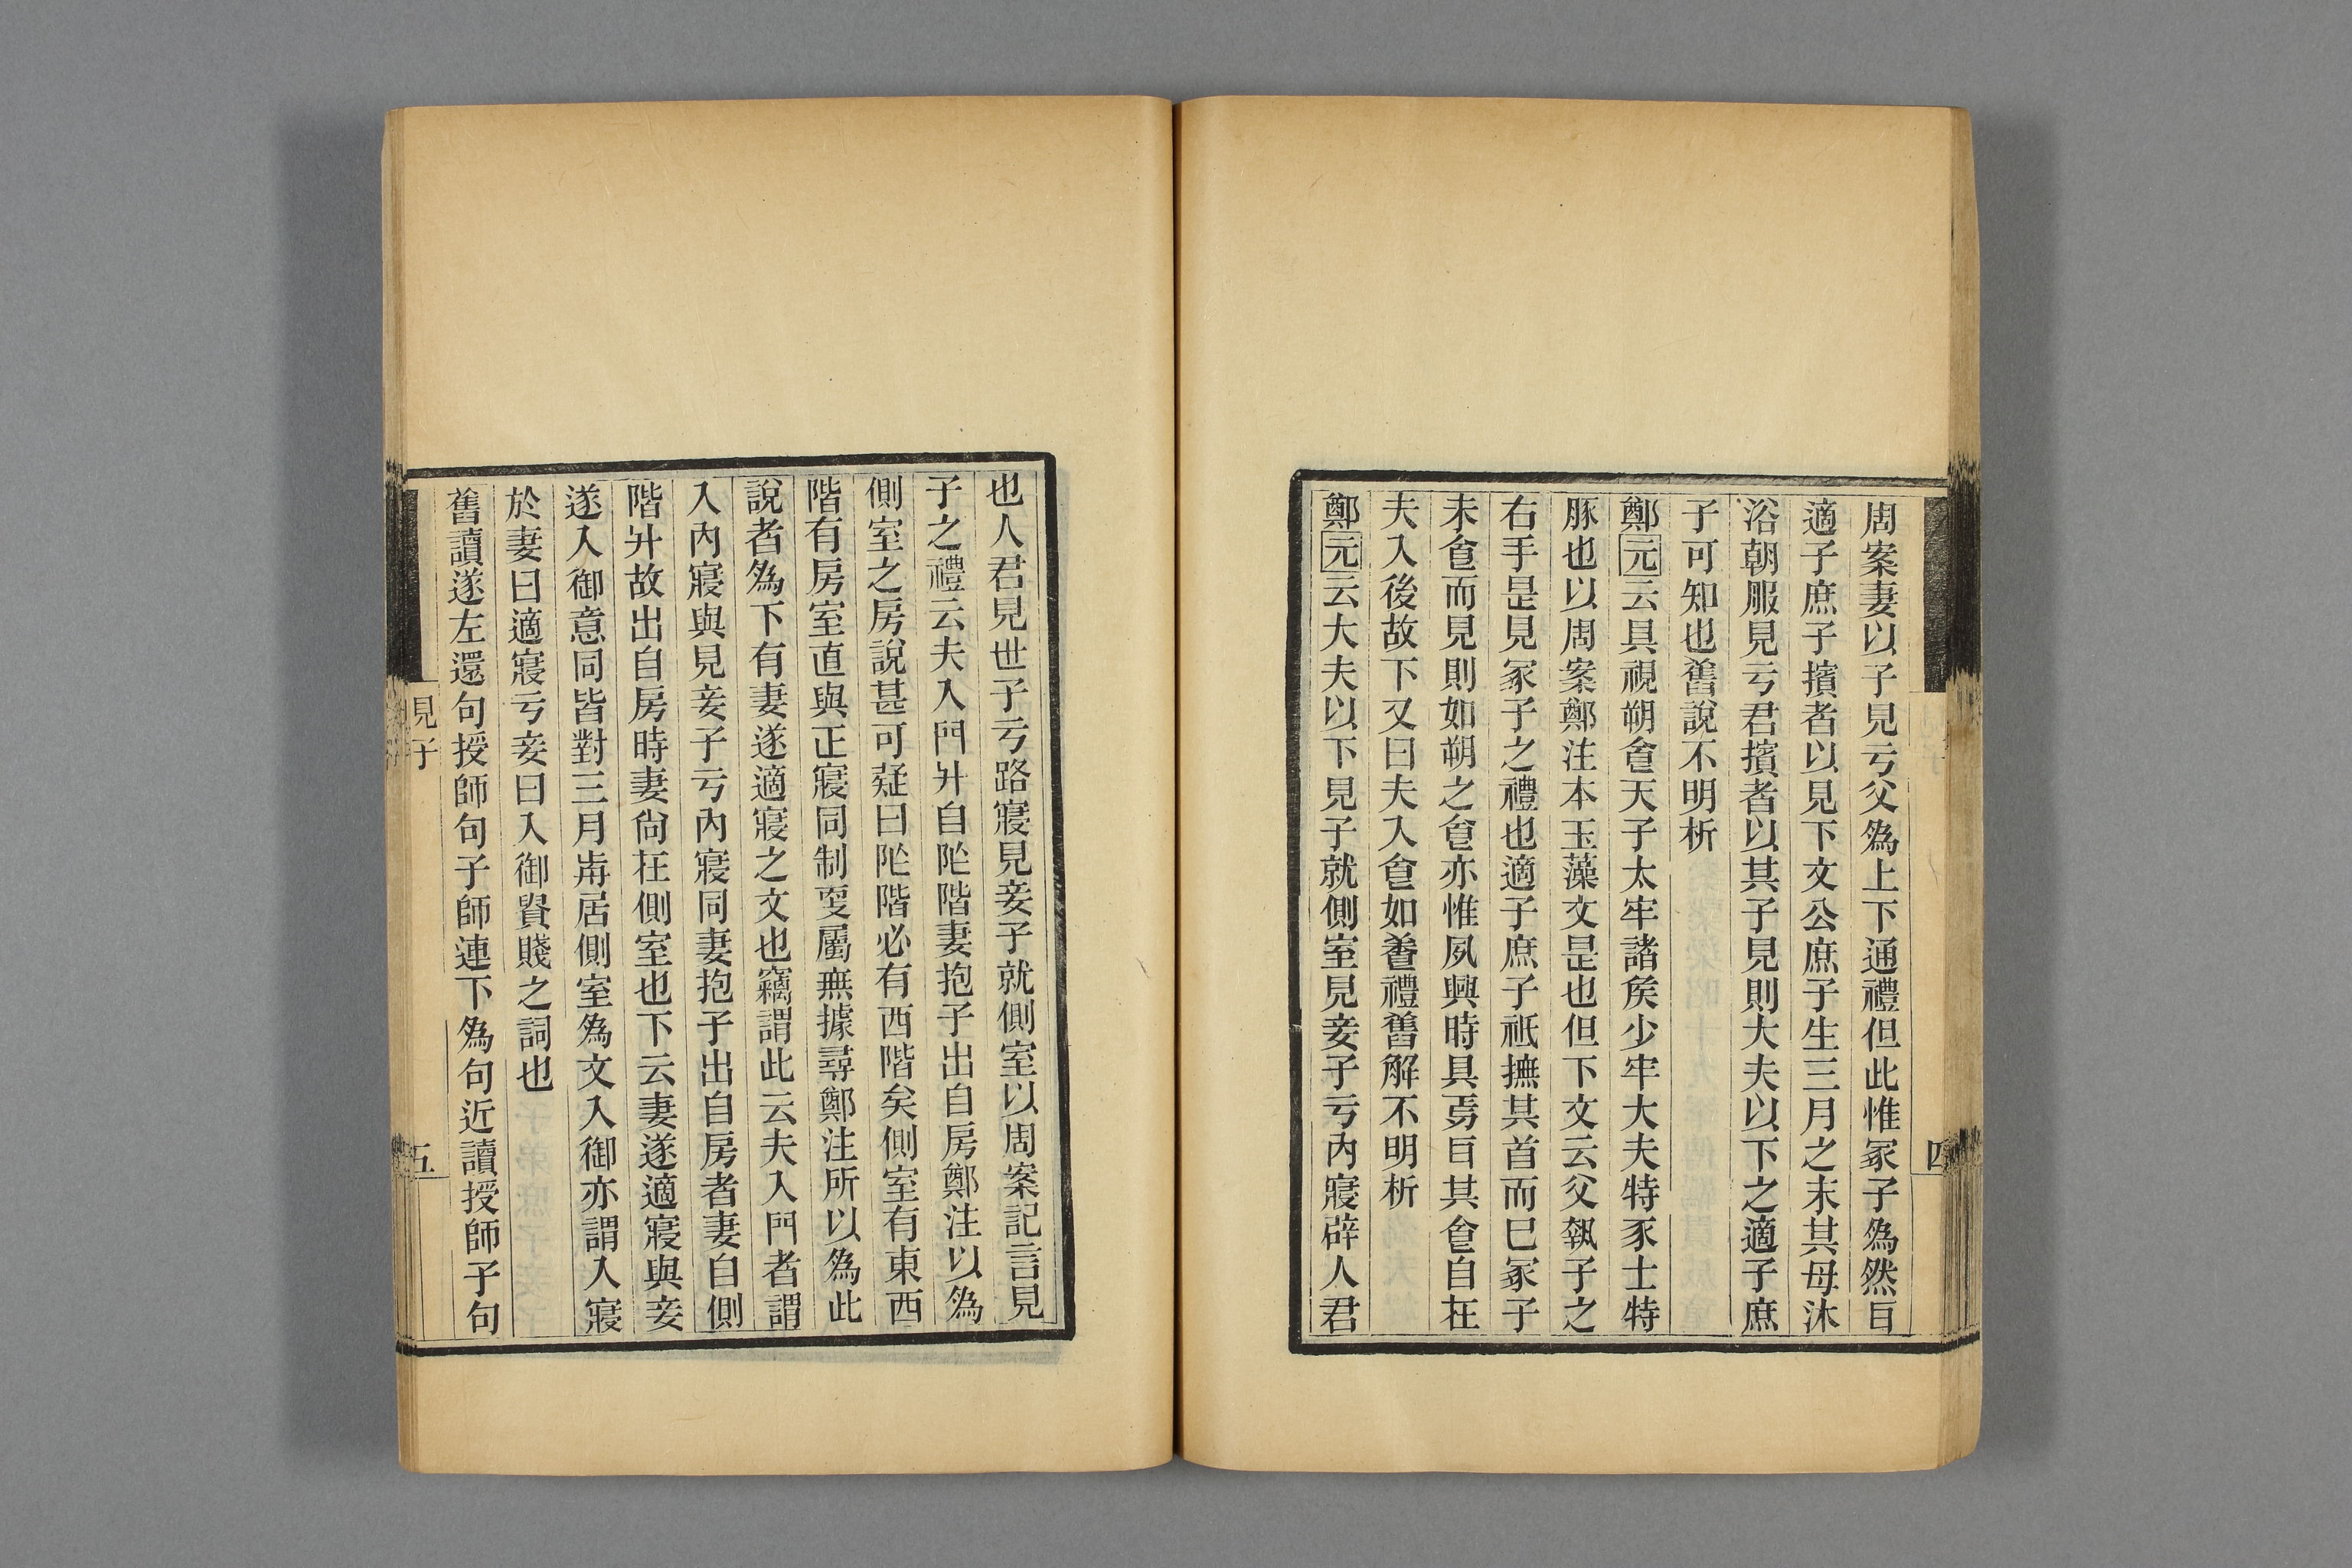 周案妻以子見亏父爲上下通禮但此惟冢子爲然㠯
適子庶子擯者以見下文公庶子生三月之末其母沐
浴朝服見亏君擯者以其子見則大夫以下之適子庶
子可知也舊說不明析
鄭元云具視朔食天子太牢諸矦少牢大夫特豕士特
豚也以周案鄭注本玉藻文是也但下文云父執子之
右手是見冢子之禮也適子庶子祇撫其首而已冢子
未食而見則如朔之食亦惟夙興時具焉㠯其食自在
夫入後故下又曰夫入食如養禮舊解不明析
鄭元云大夫以下見子就側室見妾子亏內寢辟人君
也人君見世子亏路寢見妾子就側室以周案記言見
子之禮云夫入門升自阼階妻抱子出自房鄭注以爲
側室之房說甚可疑曰阼階必有西階矣側室有東西
階有房室直與正寢同制㪅屬無據尋鄭注所以爲此
說者爲下有妻遂適寢之文也竊謂此云夫入門者謂
入內寢與見妾子亏內寢同妻抱子出自房者妻自側
階升故出自房時妻尙在側室也下云妻遂適寢與妾
遂入御意同皆對三月歬居側室爲文入御亦謂入寢
於妻曰適寢亏妾曰入御貴賤之詞也
舊讀遂左還句授師句子師連下爲句近讀授師子句
見子
四
五